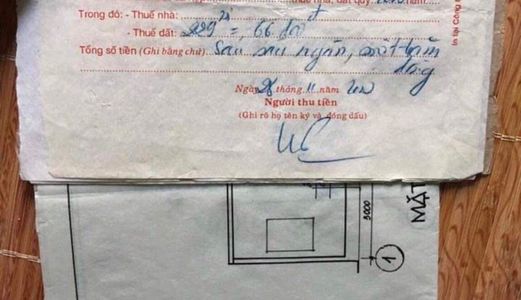 thuế nhà, đất quý năm
Trong đó: - Thuế nhà:
- Thuế đất: =, 66
Tổng số tiền (Ghi bằng chữ) Sáu sáu ngàn, một trăm
đồng
Ngày 28 tháng 11 năm
Người thu tiền
(Ghi rõ họ tên ký và đóng dấu)
In tại Công
3000
1
MẶT